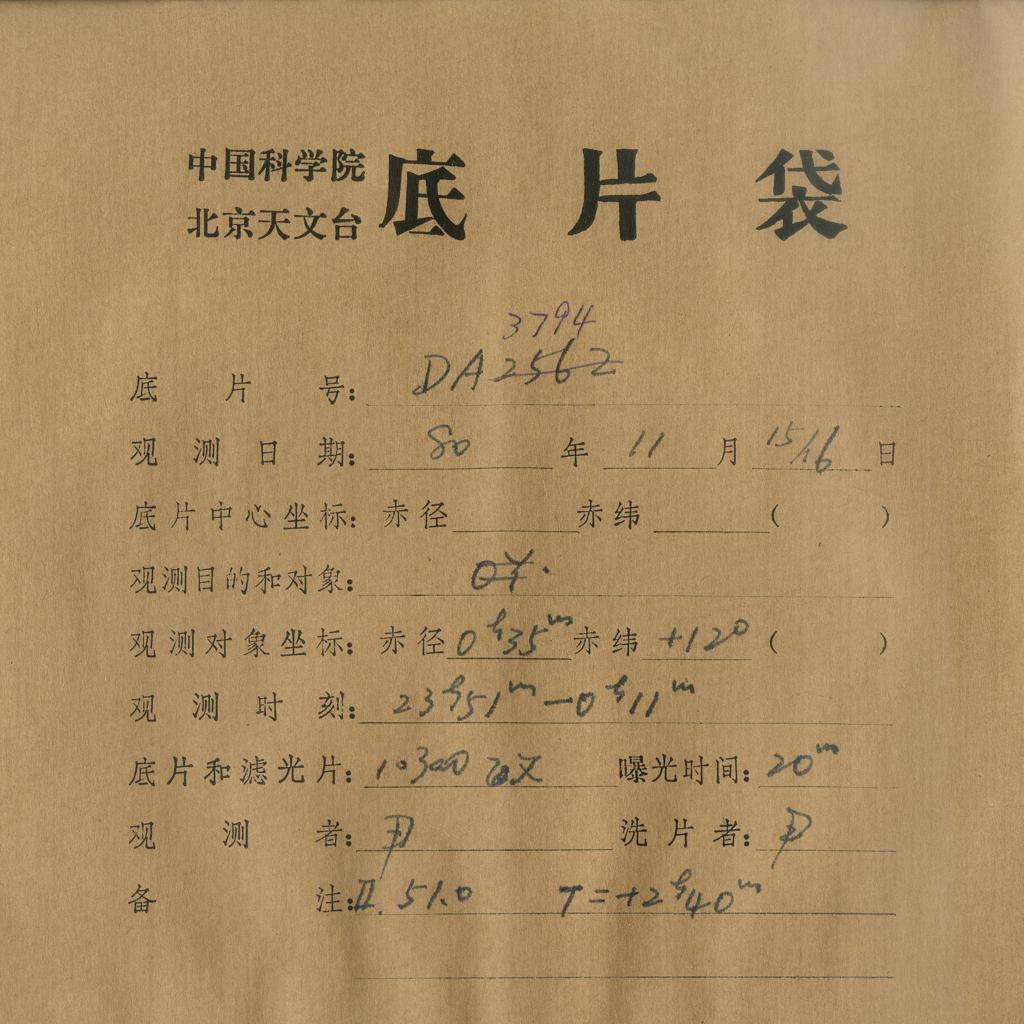 中国科学院
北京天文台
底片袋
3794
底片号：DA2562
观测日期：80年11月15/16日
底片中心坐标：赤径 赤纬 （ ）
观测目的和对象：
观测对象坐标：赤径 0ʰ35ᵐ 赤纬 +12° （ ）
观测时刻：23ʰ51ᵐ—0ʰ11ᵐ
底片和滤光片：10300 曝光时间：20ᵐ
观测者： 洗片者：
备注：II. 51.0 T=+2ʰ40ᵐ